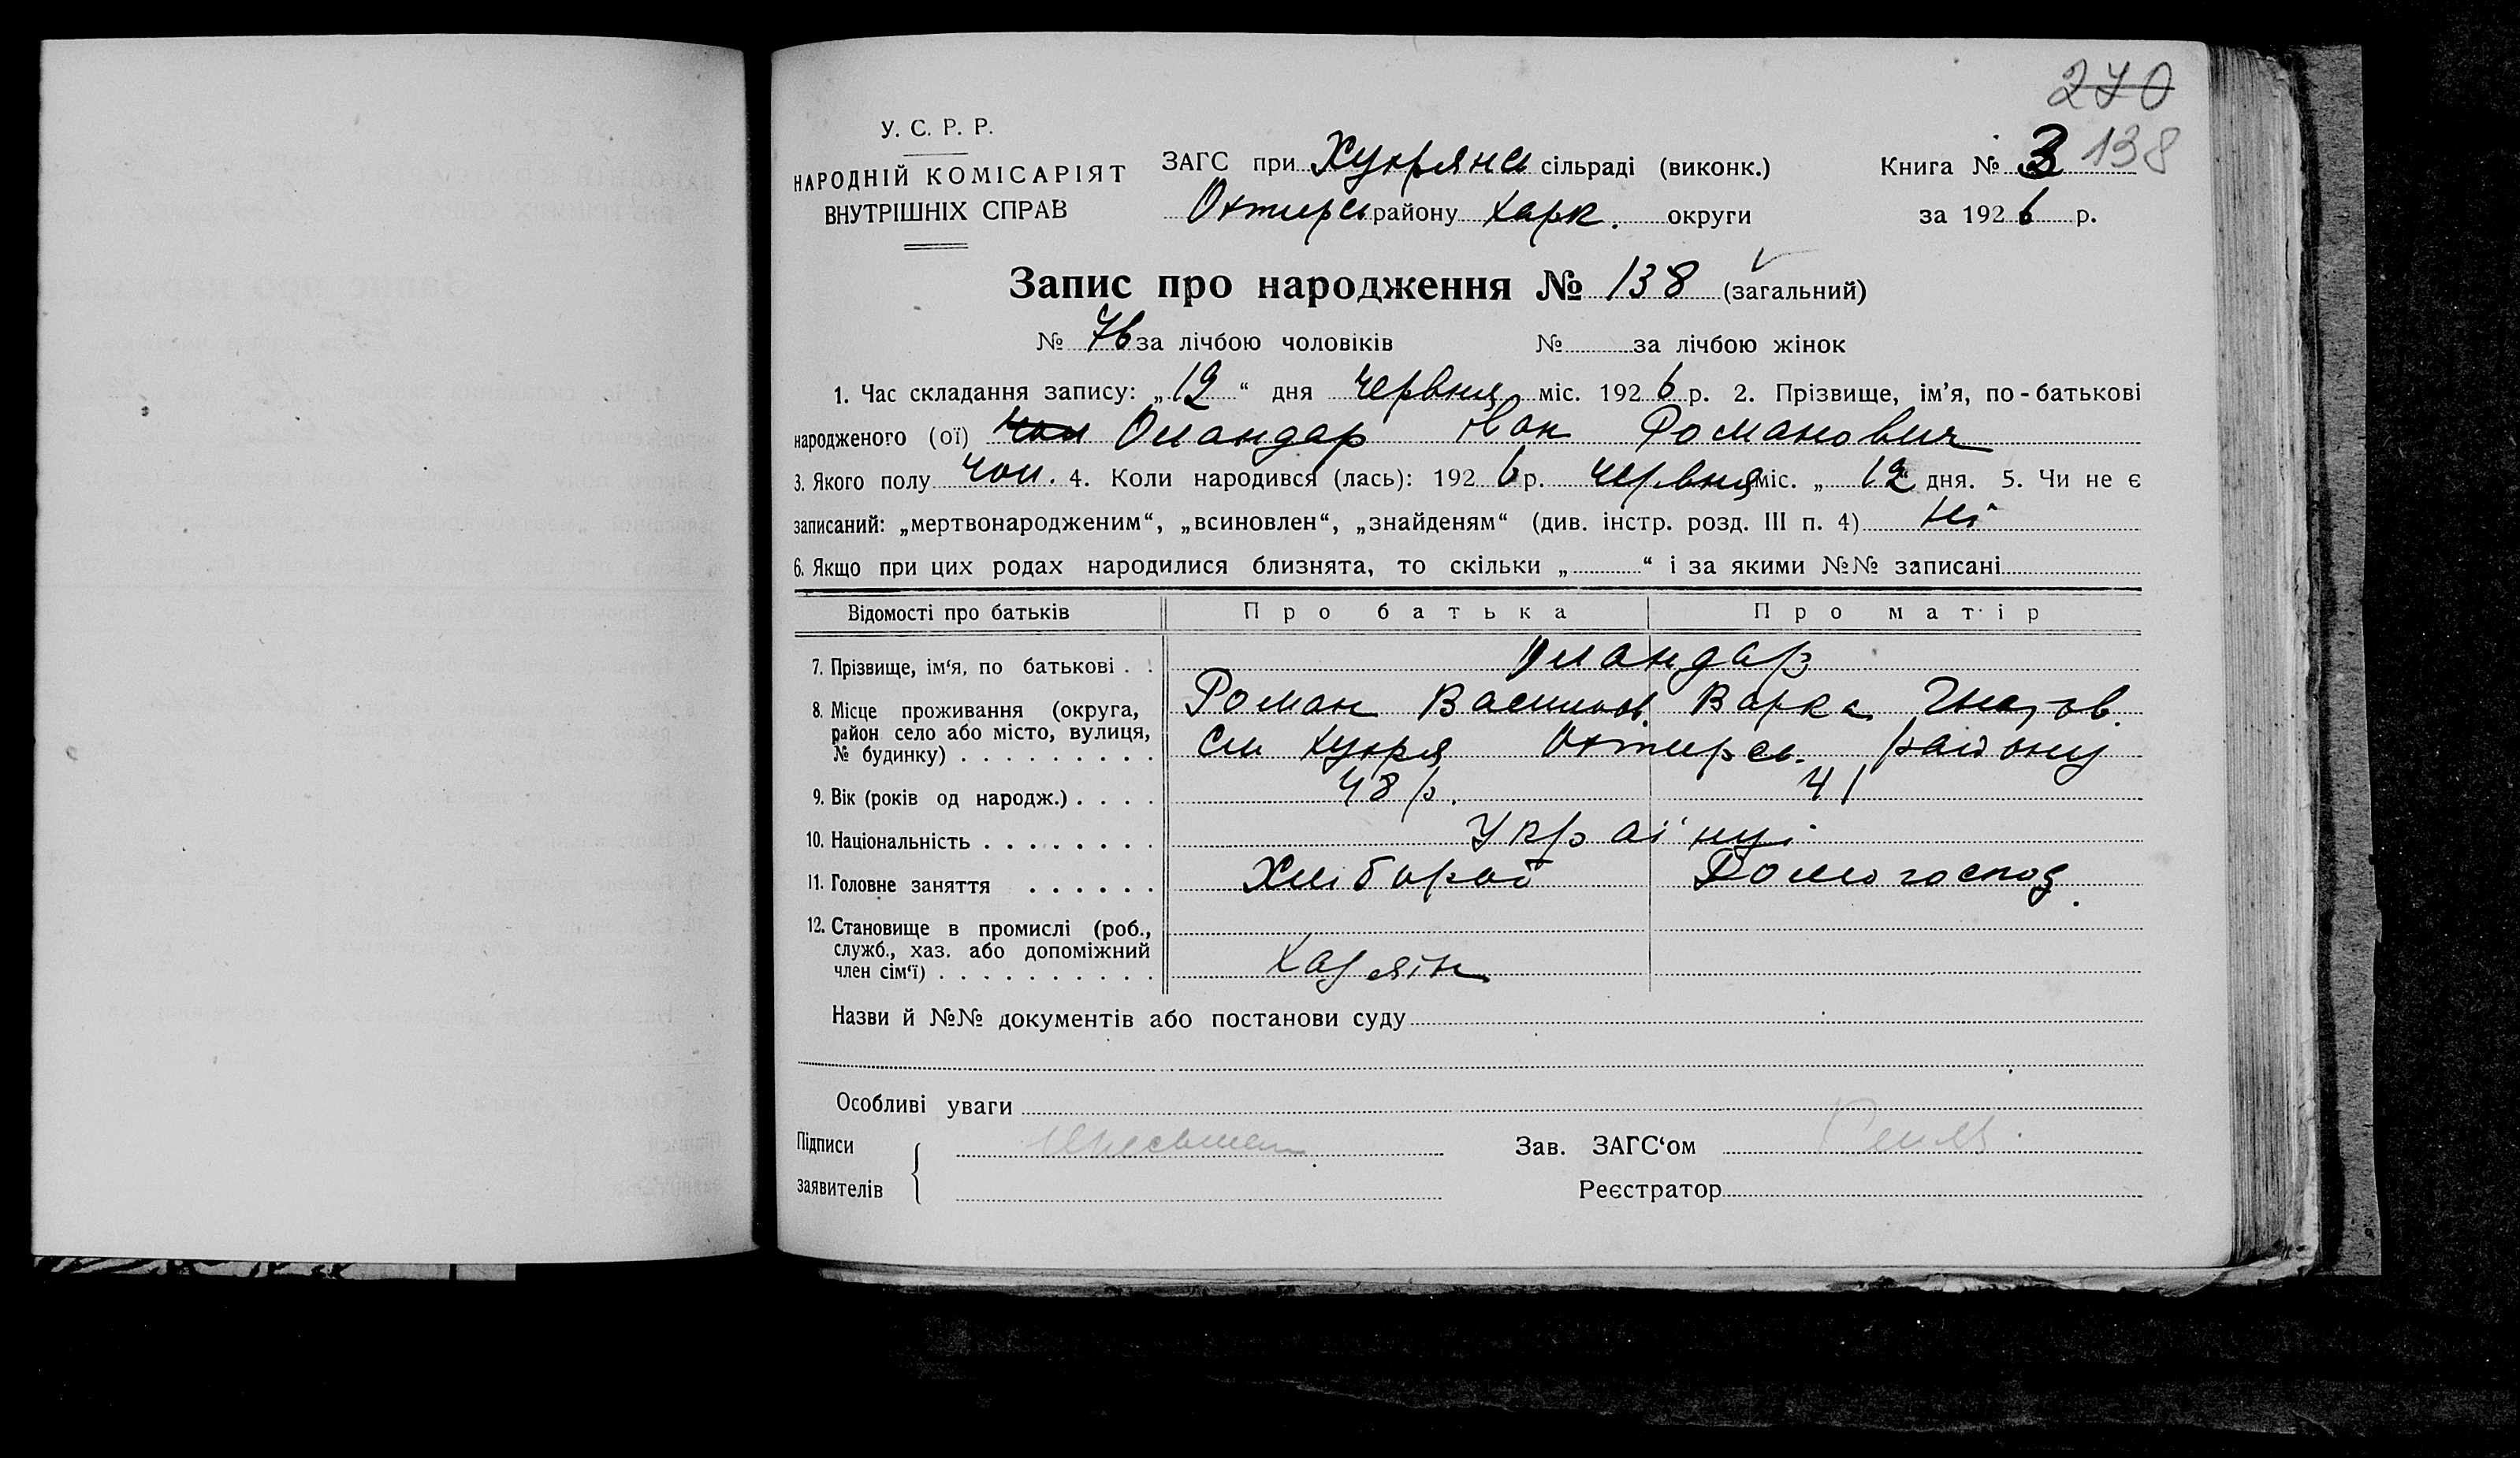 270
138
У. С. Р. Р.
НАРОДНІЙ КОМІСАРІЯТ
ВНУТРІШНІХ СПРАВ
ЗАГС при Хухрянсь сільраді (виконк.)
Охтирсь району Харк. округи
Книга № 3
за 1926 р.
Запис про народження № 138 (загальний)
№ 76 за лічбою чоловіків № за лічбою жінок
1. Час складання запису: „12“ дня червня міс. 1926 р. 2. Прізвище, ім’я, по-батькові
народженого (ої) чол Оландар Іван Романович
3. Якого полу чол. 4. Коли народився (лась): 1926 р. червня міс. „12 дня. 5. Чи не є
записаний: „мертвонародженим“, „всиновлен“, „знайденям“ (див. інстр. розд. III п. 4) Ні
6. Якщо при цих родах народилися близнята, то скільки „ “ і за якими №№ записані
Відомості про батьків Про батька Про матір
7. Прізвище, ім‘я, по батькові . . Оландар
8. Місце проживання (округа, Роман Васильов. Варка Гнатов.
район село або місто, вулиця,
№ будинку) . . . . . . . . . сл Хухря Охтирсь. району
9. Вік (років од народж.) . . . . 48 р. 41
10. Національність . . . . . . . . Українці
11. Головне заняття . . . . . . Хлібороб Домогоспод.
12. Становище в промислі (роб.,
служб., хаз. або допоміжний
член сім‘ї) . . . . . . . . . . Хазяїн
Назви й №№ документів або постанови суду
Особливі уваги
Підписи
заявителів
Зав. ЗАГС‘ом
Реєстратор